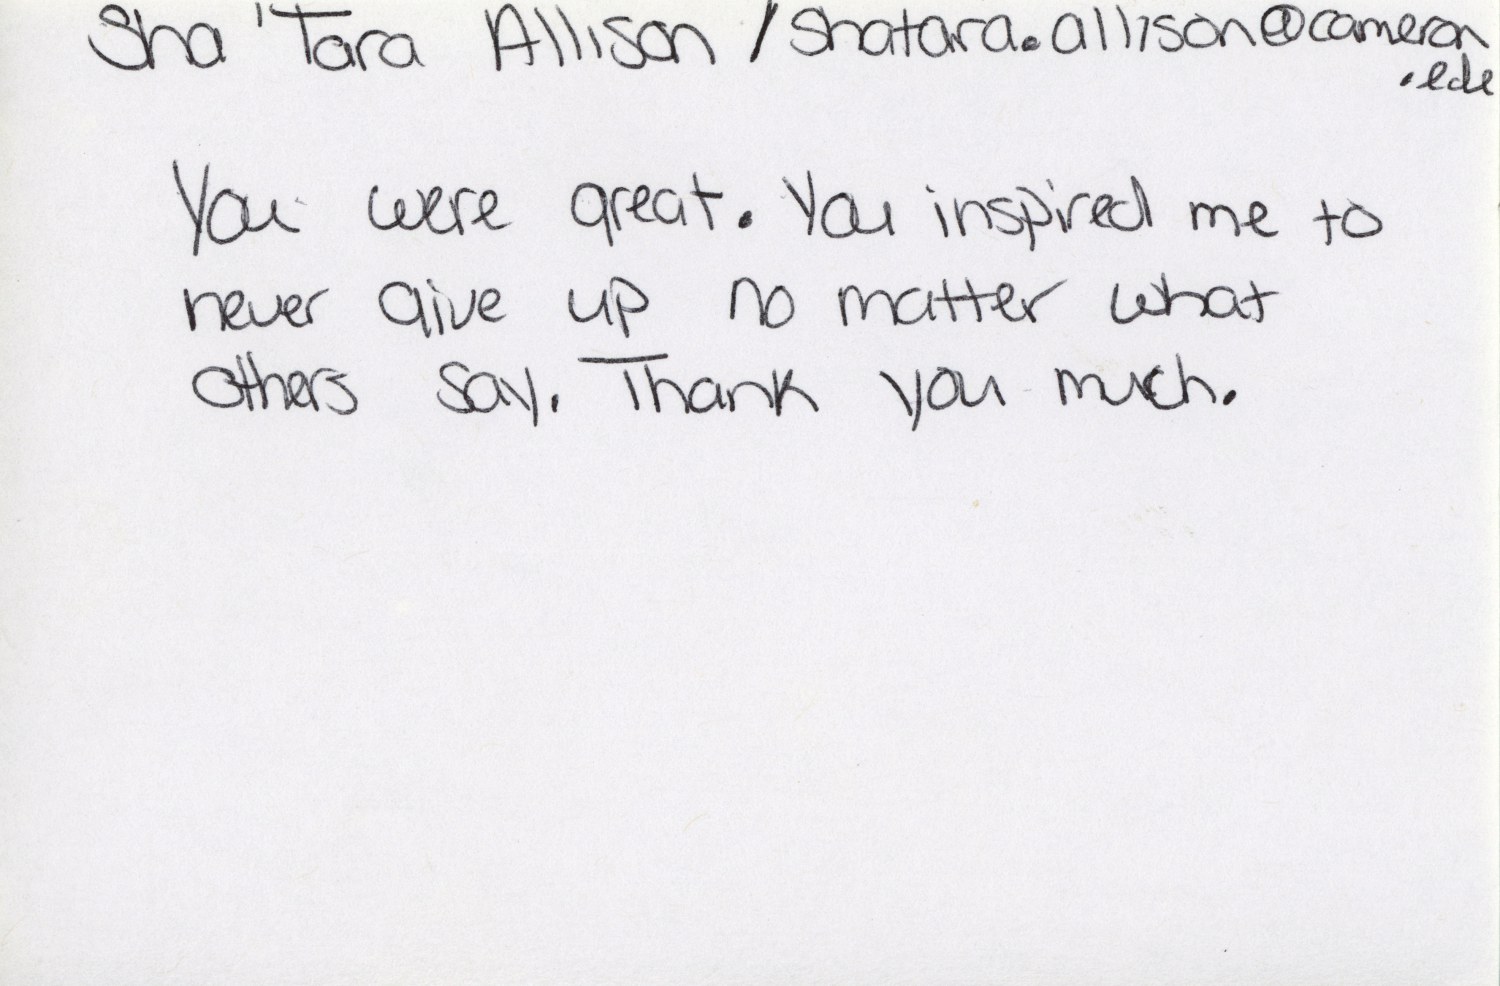 Sha'Tara Allison / shatara.allison@cameron
.edu
You were great. You inspired me to
never give up no matter what
others say. Thank you much.